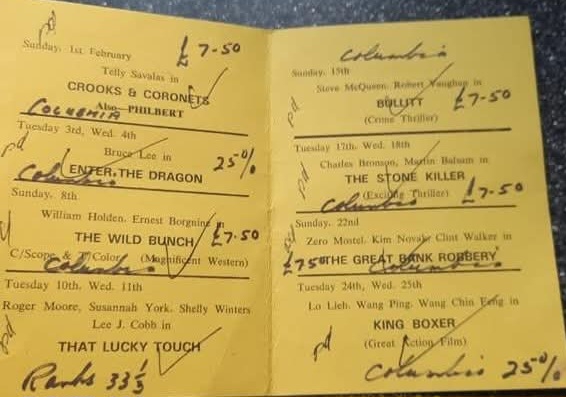 pd
Sunday. 1st February £7-50
Telly Savalas in
CROOKS & CORONETS
Also PHILBERT
COLUMBIA
Tuesday 3rd, Wed. 4th
pd
Bruce Lee in 25%
ENTER THE DRAGON
Columbia
Sunday. 8th
William Holden. Ernest Borgnine in
THE WILD BUNCH £7.50
C/Scope & Color (Magnificent Western)
Columbia
Tuesday 10th. Wed. 11th
Roger Moore, Susannah York. Shelly Winters
Lee J. Cobb in
pd
THAT LUCKY TOUCH
Ranks 33⅓
Columbia
Sunday. 15th
Steve McQueen. Robert Vaughan in
BULLITT £7-50
pd
(Crime Thriller)
Tuesday 17th. Wed. 18th
Charles Bronson, Martin Balsam in
pd
THE STONE KILLER
(Exciting Thriller) £7-50
Columbia
Sunday. 22nd
Zero Mostel. Kim Novak, Clint Walker in
£7.50 THE GREAT BANK ROBBERY
Columbia
Tuesday 24th, Wed. 25th
Lo Lieh. Wang Ping. Wang Chin Feng in
KING BOXER
pd
(Great Action Film)
Columbia 25%